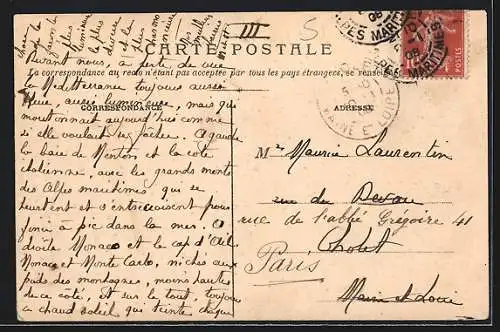 III
CARTE POSTALE
La correspondance au recto n'étant pas acceptée par tous les pays étrangers, se renseig
CORRESPONDANCE
ADRESSE
Devant nous, à perte de vue
la Méditerranée toujours aussi
bleue, aussi lumineuse, mais qui
moutonnait aujourd'hui comme
si elle voulait se fâcher. A gauche
la baie de Menton et la côte
italienne, avec les grands monts
des Alpes maritimes qui se
heurtent et s'entrecroisent pour
finir à pic dans la mer. A
droite Monaco et le cap d'Ail
Monaco et Monte Carlo, nichés aux
pieds des montagnes, moins hautes
de ce côté, et sur le tout, toujours
ce chaud soleil qui teinte chaque
chose de
la façon la
plus
lumineuse
la plus
douce
et la
plus
Mr Maurice Laurentin
rue du Devau
rue de l'abbé Grégoire 41
Cholet
Paris
Maine et Loire
ALPES MARITIMES
MAINE ET LOIRE
POSTES